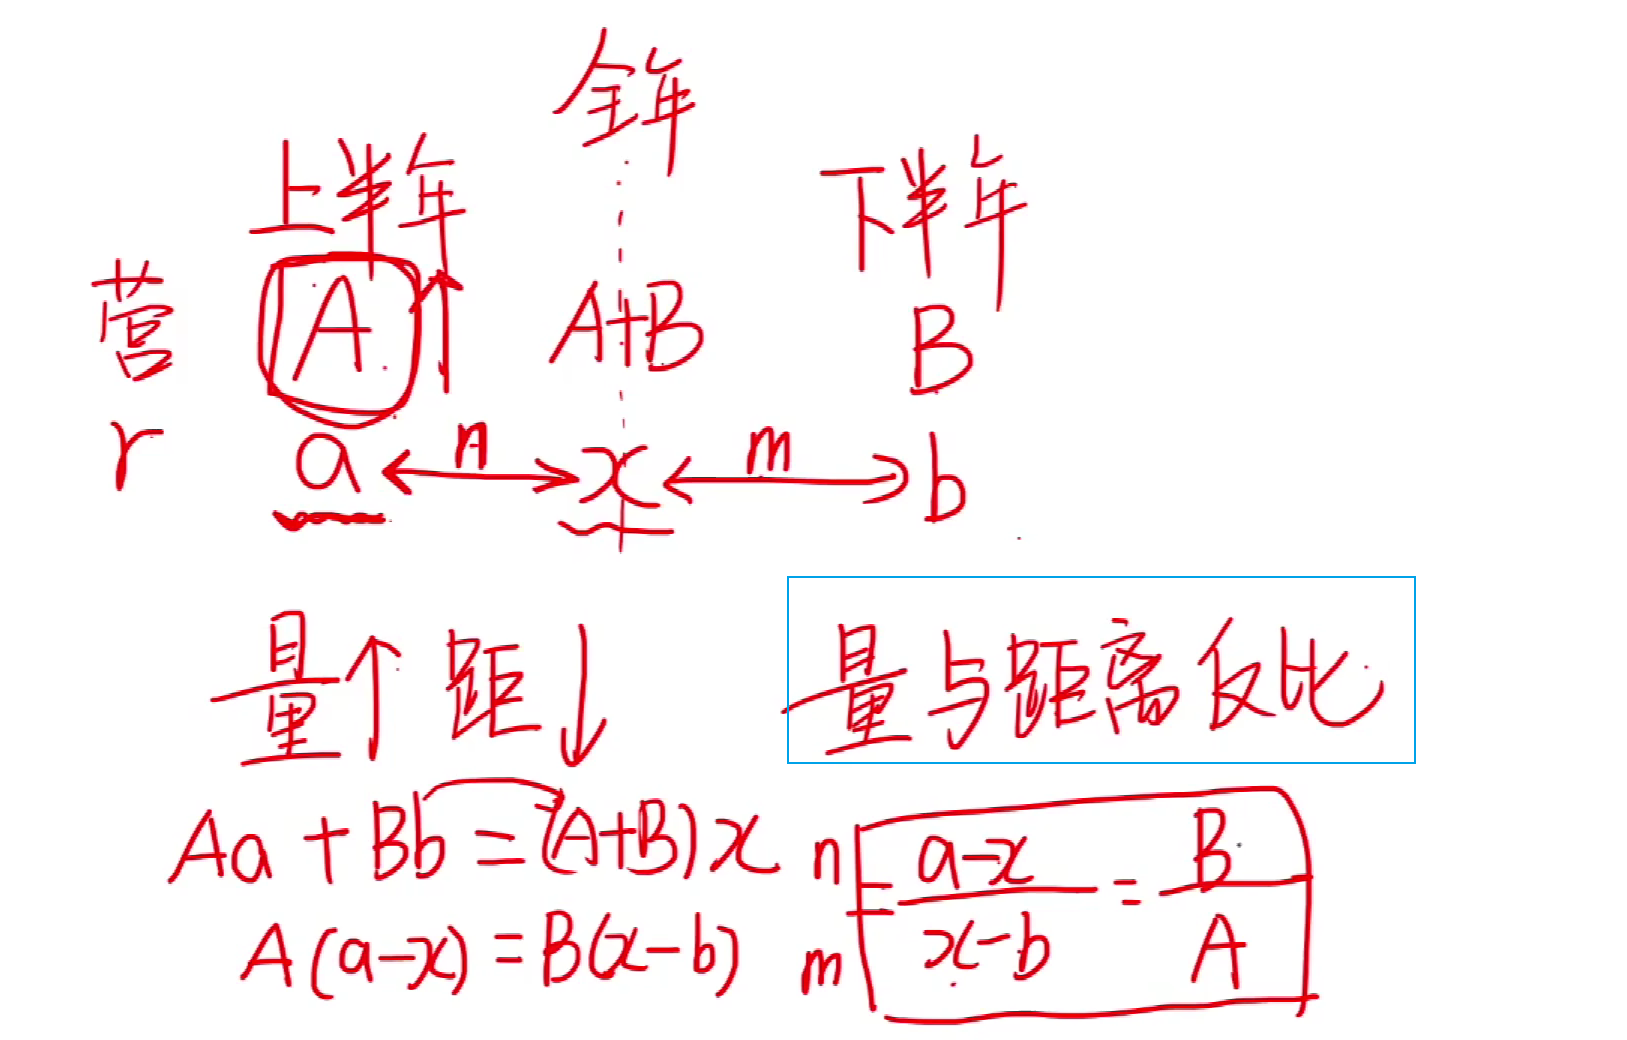 全年
上半年 下半年
营 A↑ A+B B
r a n x m b
量↑ 距↓ 量与距离反比
Aa + Bb = (A+B)x
A(a-x) = B(x-b)
n/m = (a-x)/(x-b) = B/A